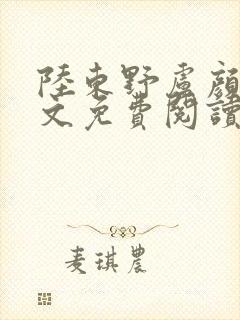 陸東野盧顔
文免費閱讀
麦琪農